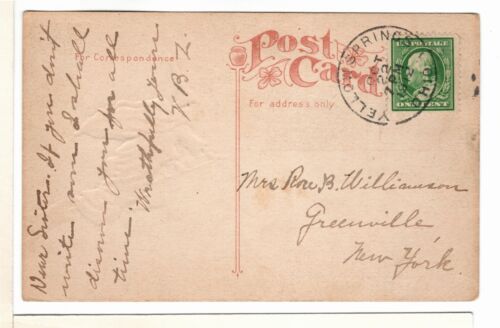 Post
Card
For Correspondence
For address only.
YELLOW SPRINGS
OHIO
OCT
23
U.S. POSTAGE
ONE CENT
Dear Sister. If you don't
write soon I shall
disown you for all
time.
Wrathfully yours
Mrs B. Williamson
Greenville
New York.